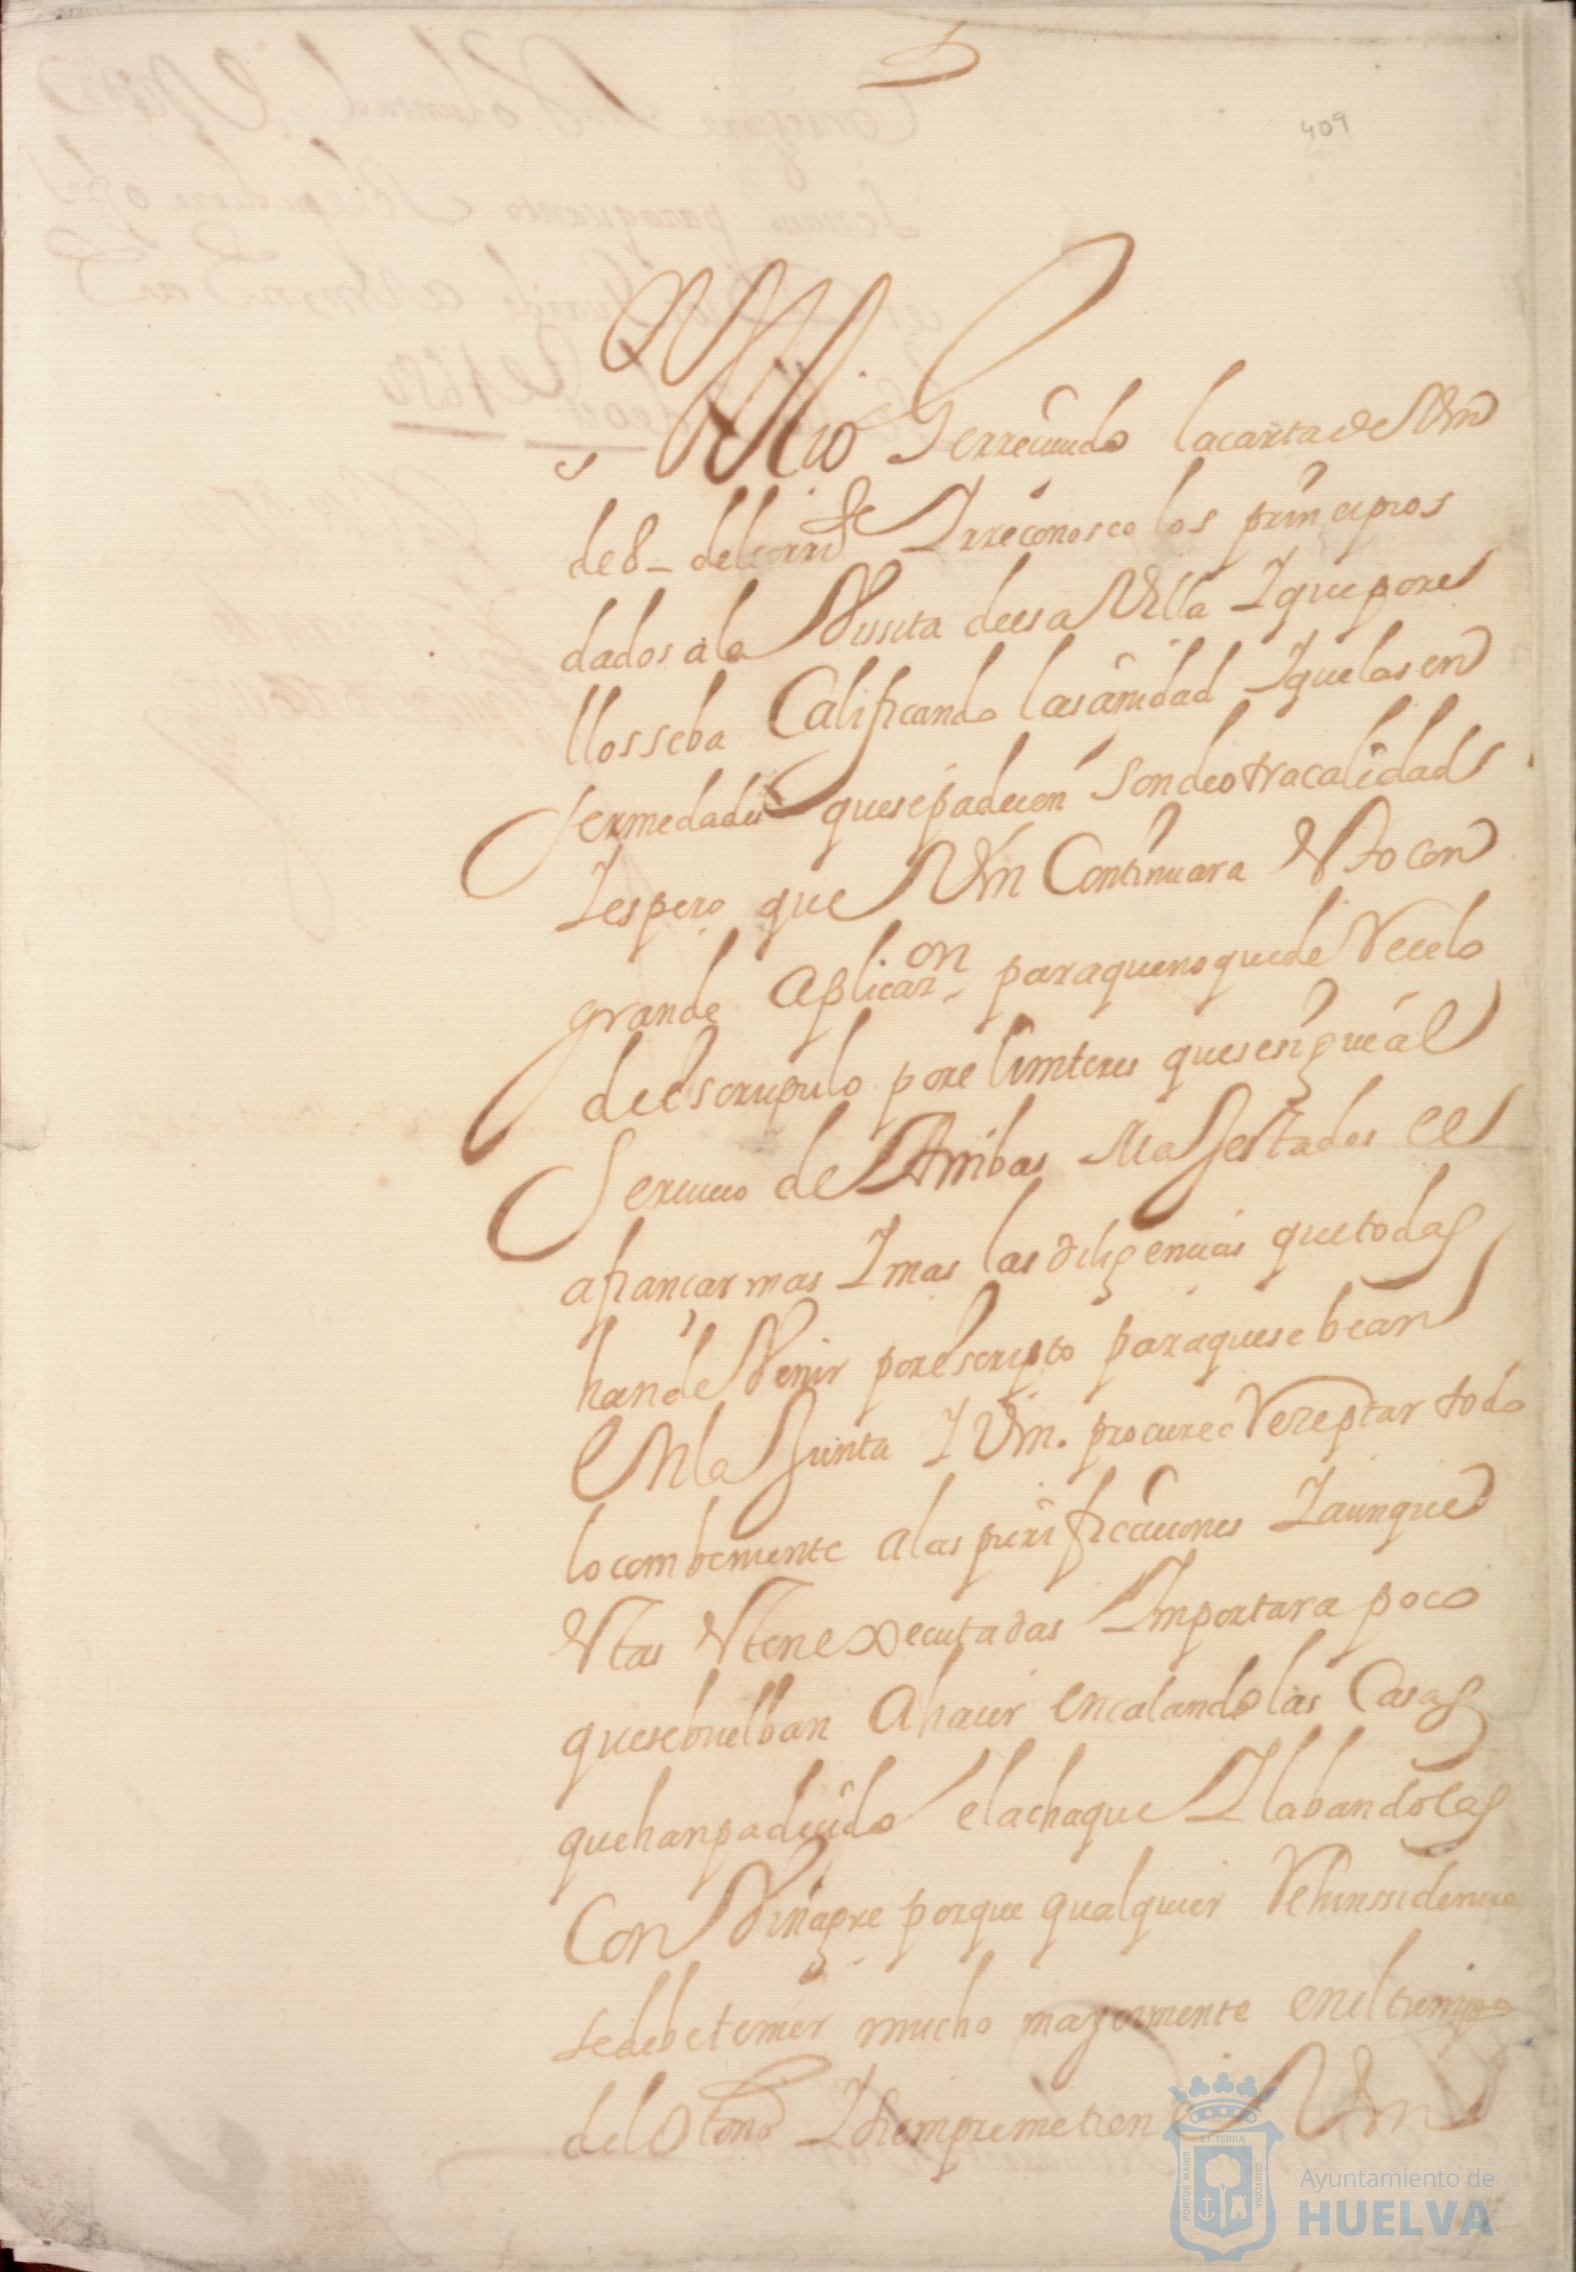 409
s.r Mio He rreciuido la carta de Vm
de 8_ del corri.te I rreconosco los principios
dados a la Vissita de esa Villa I que por e
llos se ba Calificando la sanidad I que las en
fermedades que se padecen son de otra calidad
I espero que Vm Continuara esto con
grande aplicaz.on para que no quede rrecelo
de escrupulo por el ynteres que se sigue al
Seruicio de Ambas Magestades el
afiancar mas I mas las diligencias que todas
han de Venir por escripto para que se bean
En la Junta I Vm. procure rrezeptar todo
lo combeniente a las purificaciones I aunque
estas esten execcutadas Importara poco
que se buelban A hacer encalando las Casas
que han padecido el achaque I labandolas
Con Vinagre porque qualquier rrehinssidencia
se debe temer mucho mayormente en el tiempo
del Otono I siempre me tiene Vm
PORTUS MARIS
ET TERRÆ
CUSTODIA
Ayuntamiento de
HUELVA